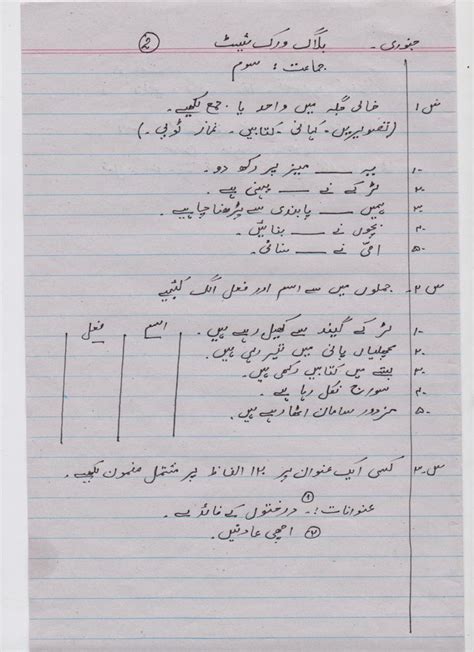 جنوری - بلاک ورک شیٹ 2
جماعت : سوم
س۱ خالی جگہ میں واحد یا جمع لکھیے۔
(تصویریں - کہانی - کتابیں - نماز ٹوپی -)
۱- یہ ___ میز پر رکھ دو۔
۲- لڑکے نے ___ پہنی ہے۔
۳- ہمیں ___ پابندی سے پڑھنا چاہیے۔
۴- بچوں نے ___ بنائیں۔
۵- امّی نے ___ سنائی۔
س۲- جملوں میں سے اسم اور فعل الگ کیجیے
اسم فعل
۱- لڑکے گیند سے کھیل رہے ہیں۔
۲- مچھلیاں پانی میں تیر رہی ہیں۔
۳- بستے میں کتابیں رکھی ہیں۔
۴- سورج نکل رہا ہے۔
۵- مزدور سامان اٹھا رہے ہیں۔
س۳- کسی ایک عنوان پر ۱۲۰ الفاظ پر مشتمل مضمون لکھیے۔
عنوانات :- ۱ درختوں کے فائدے۔
۲ اچھی عادتیں۔